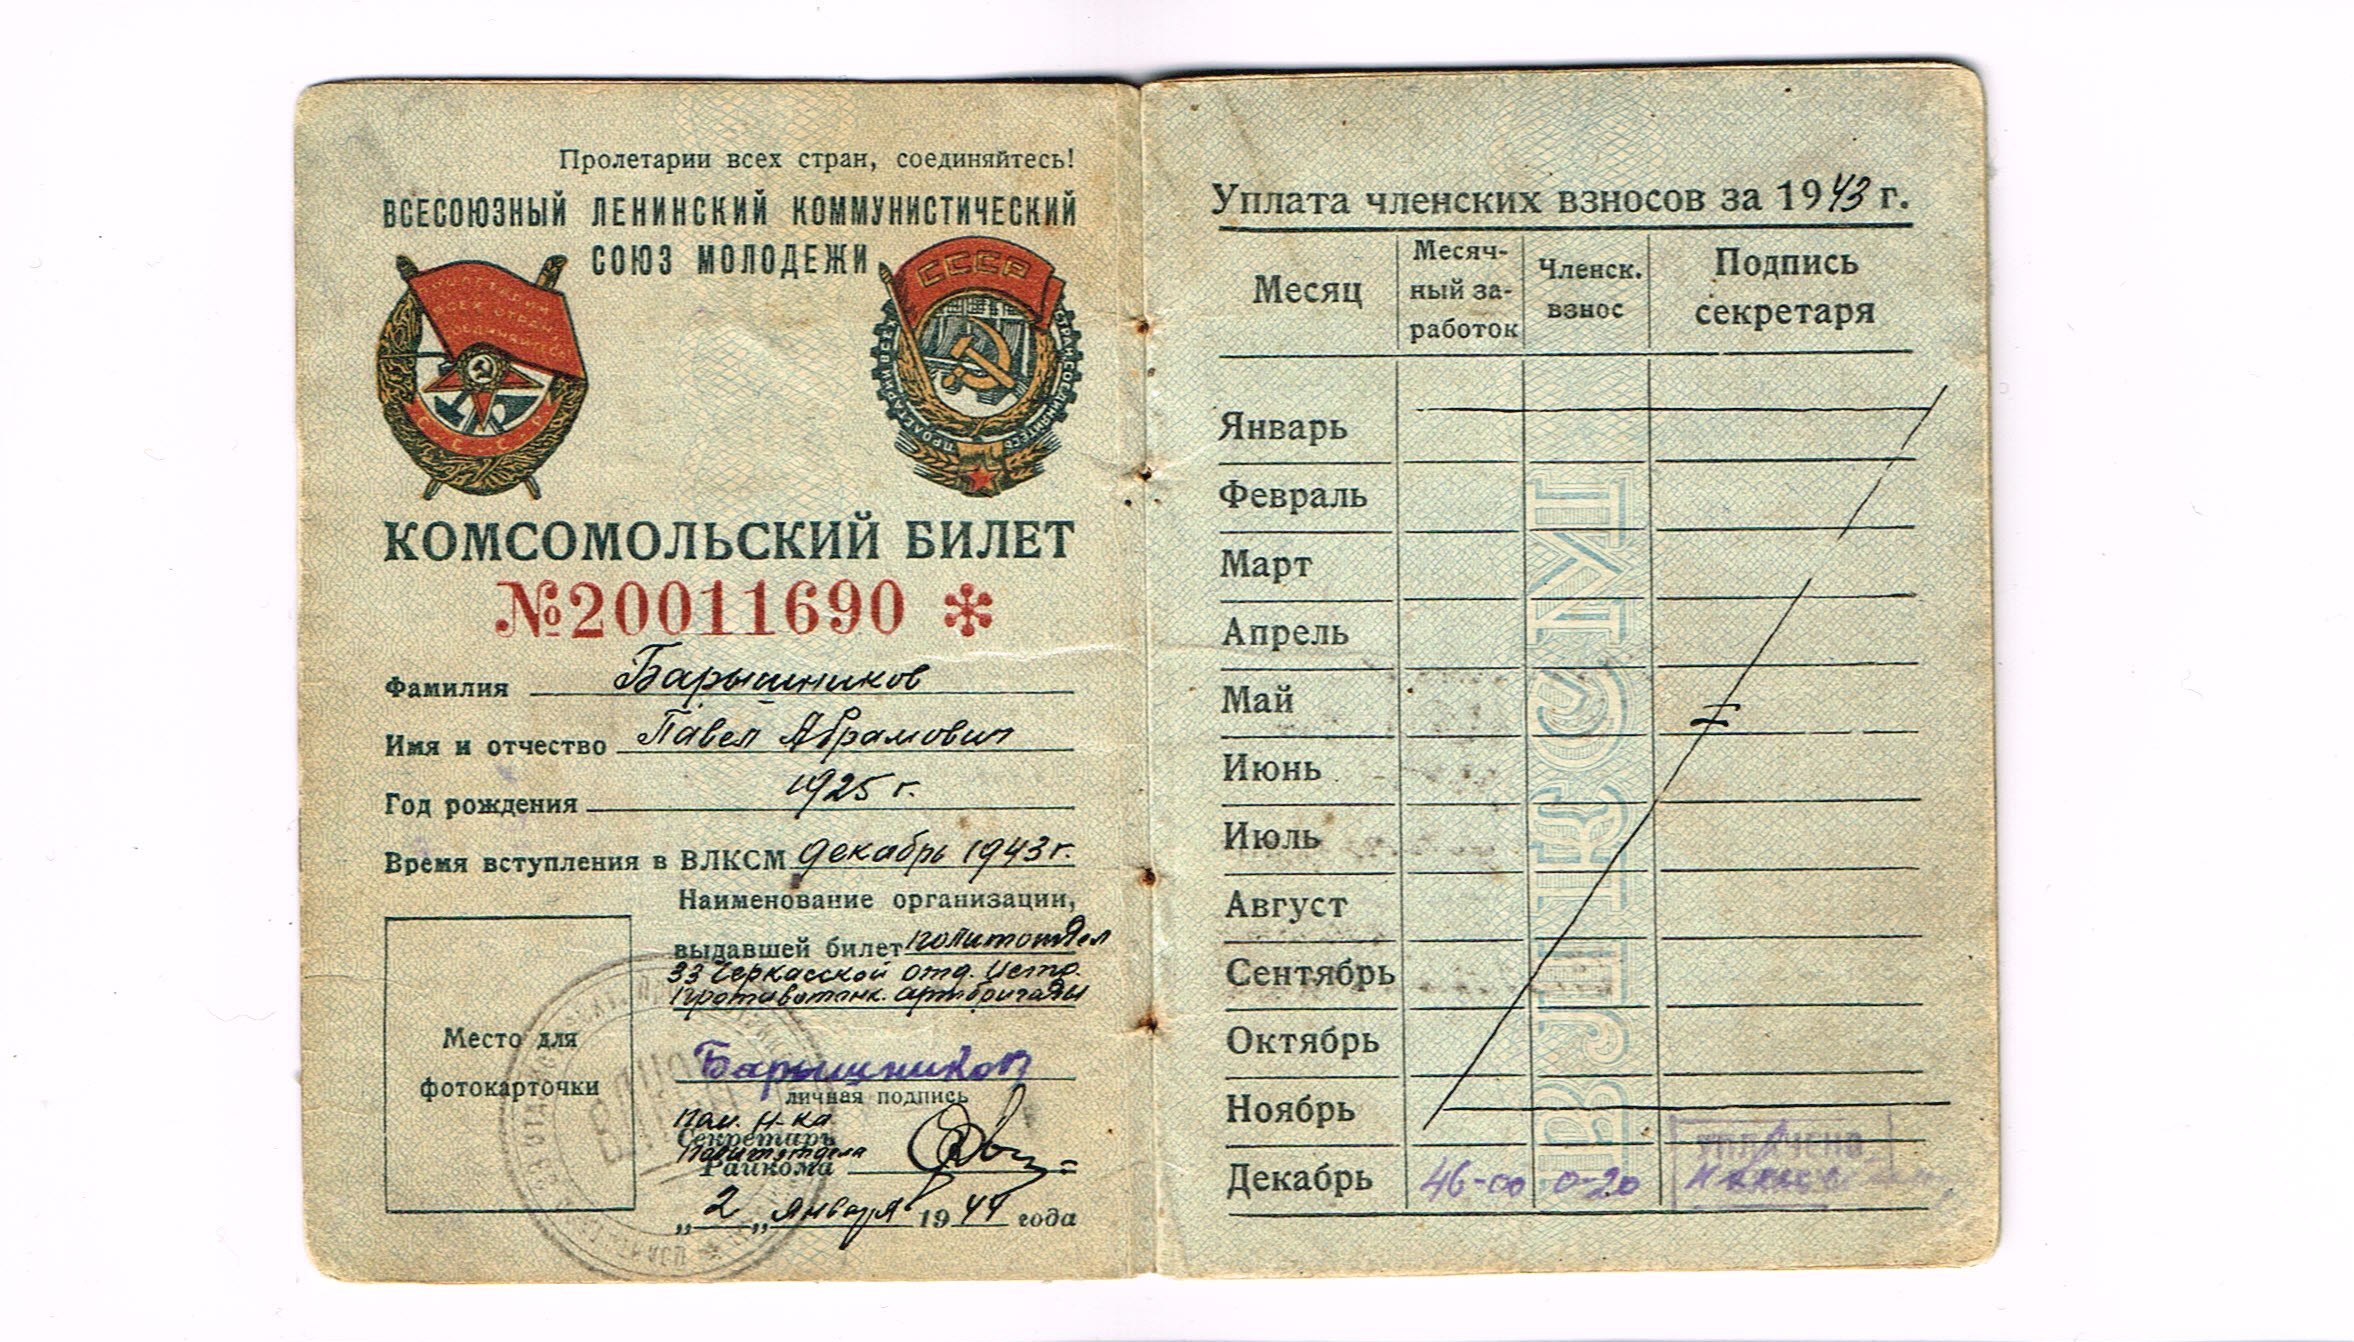 Пролетарии всех стран, соединяйтесь!
ВСЕСОЮЗНЫЙ ЛЕНИНСКИЙ КОММУНИСТИЧЕСКИЙ
СОЮЗ МОЛОДЕЖИ
ПРОЛЕТАРИИ
ВСЕХ СТРАН,
СОЕДИНЯЙТЕСЬ
СССР
СССР
ПРОЛЕТАРИИ ВСЕХ СТРАН СОЕДИНЯЙТЕСЬ
КОМСОМОЛЬСКИЙ БИЛЕТ
№20011690 *
Фамилия Барышников
Имя и отчество Павел Абрамович
Год рождения 1925 г.
Время вступления в ВЛКСМ декабрь 1943 г.
Наименование организации,
выдавшей билет политотдел
33 Черкасской отд. Истр.
Противотанк. артбригады
Место для
фотокарточки
Барышников
личная подпись
Пом. Н-ка
Секретарь
Политотдела
Райкома
„2„ января 1944 года
Уплата членских взносов за 1943 г.
Месяц
Месяч-
ный за-
работок
Членск.
взнос
Подпись
секретаря
Январь
Февраль
Март
Апрель
Май
Июнь
Июль
Август
Сентябрь
Октябрь
Ноябрь
Декабрь 46-00 0-20
УПЛАЧЕНО
ВЛКСМ